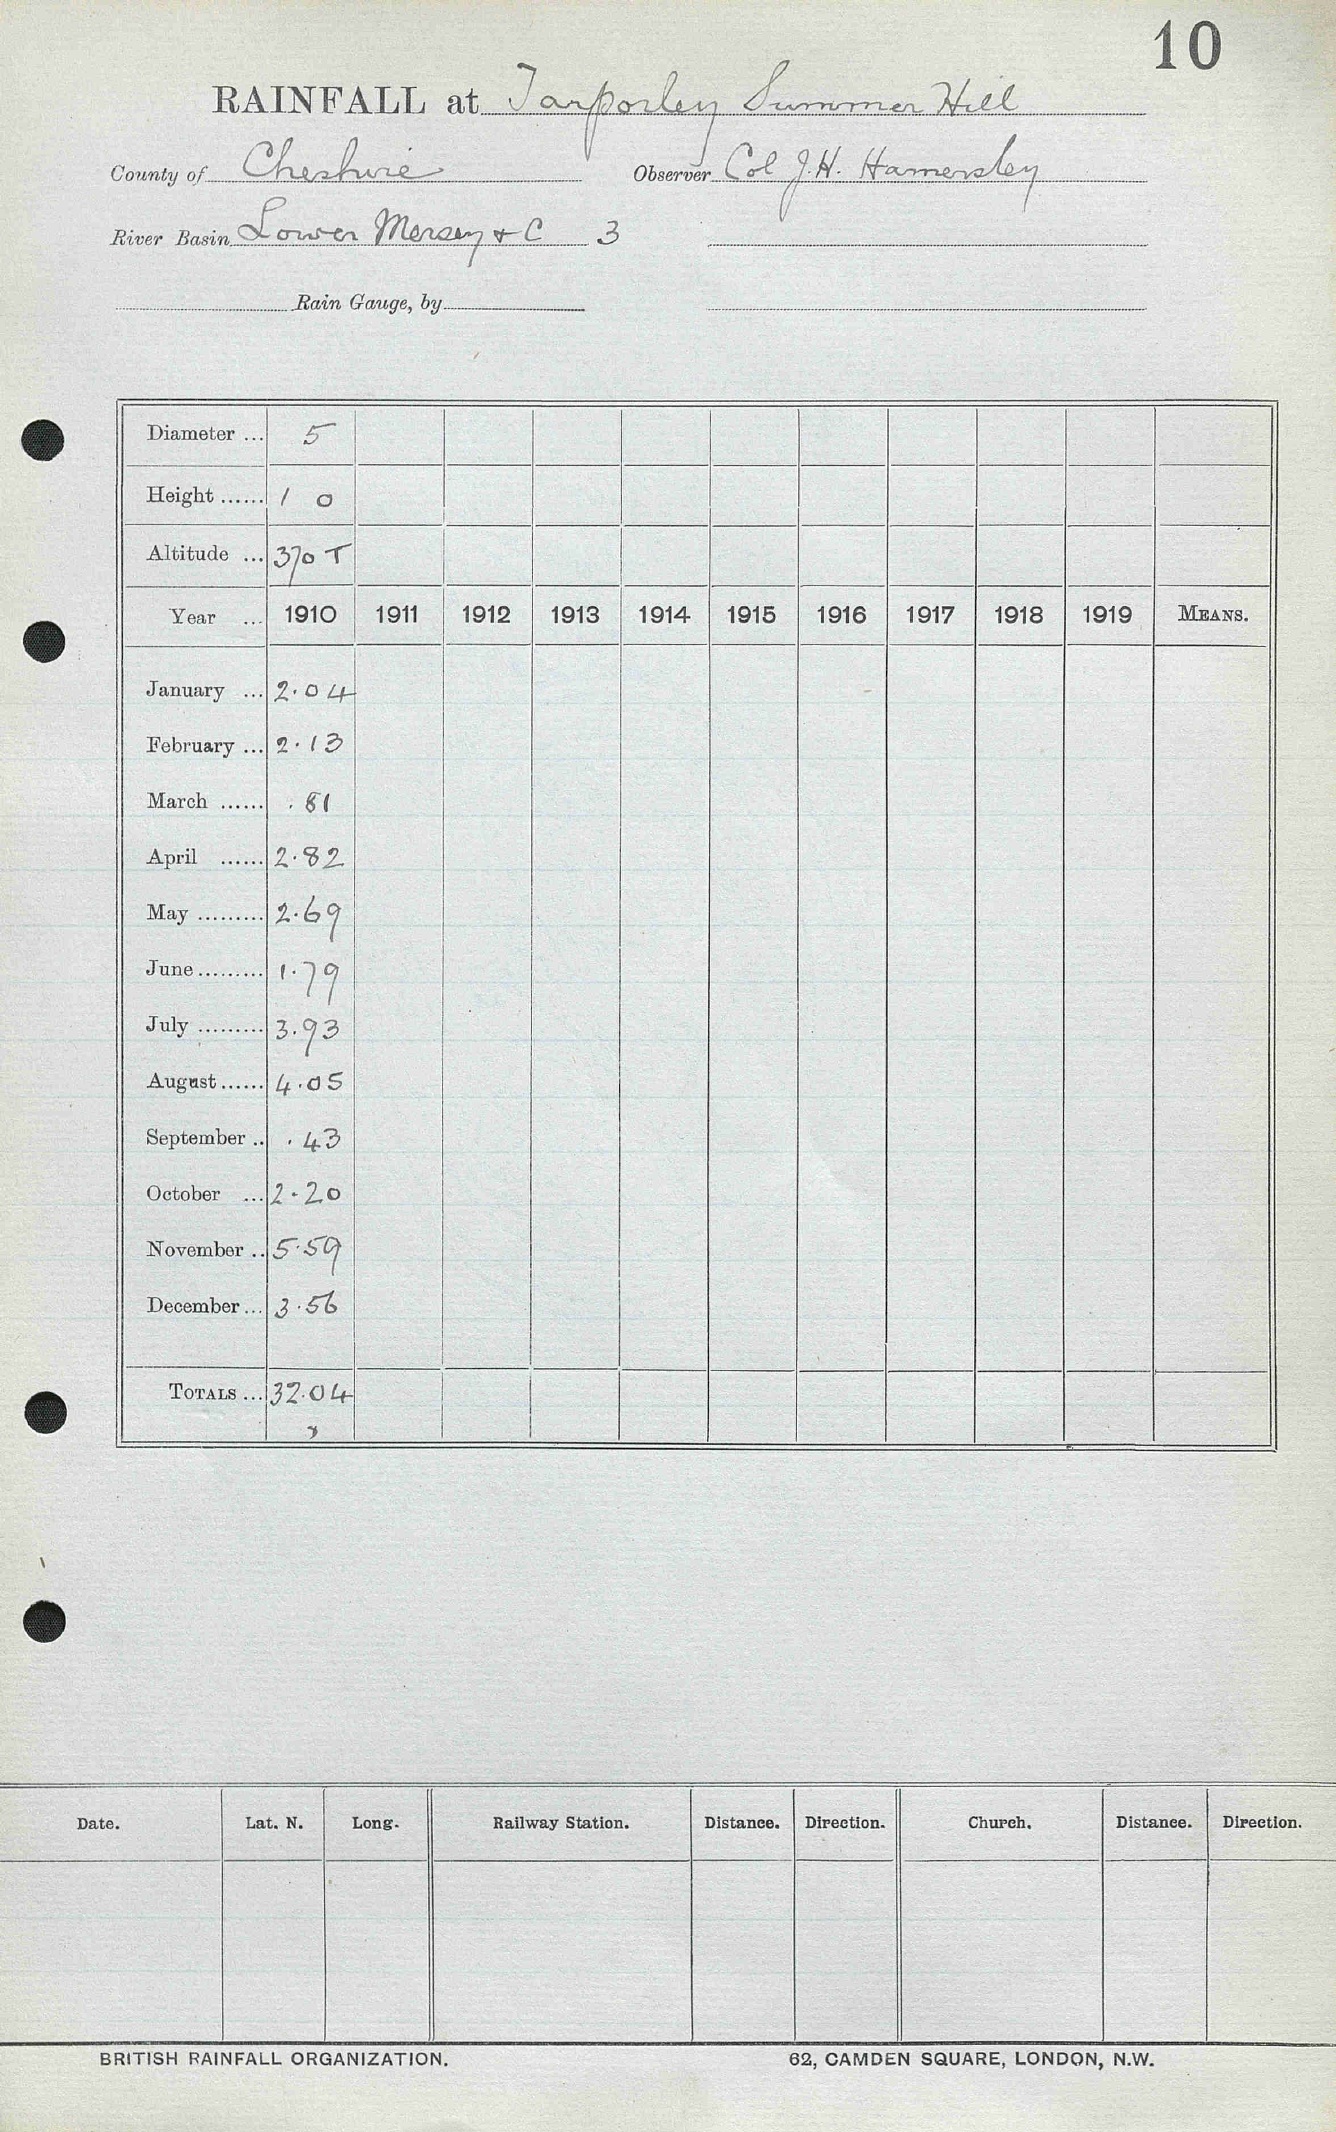 10
RAINFALL at Tarporley Summer Hill
County of Cheshire Observer Col J.H. Hamersley
River Basin Lower Mersey & C 3
Rain Gauge, by
Diameter ... 5
Height ...... 1 0
Altitude ... 370 T
Year ... 1910 1911 1912 1913 1914 1915 1916 1917 1918 1919 MEANS.
January ... 2.04
February ... 2.13
March ...... .81
April ...... 2.82
May ......... 2.69
June ......... 1.79
July ......... 3.93
August ...... 4.05
September .. .43
October ... 2.20
November .. 5.59
December ... 3.56
TOTALS ... 32.04
Date. Lat. N. Long. Railway Station. Distance. Direction. Church. Distance. Direction.
BRITISH RAINFALL ORGANIZATION. 62, CAMDEN SQUARE, LONDON, N.W.